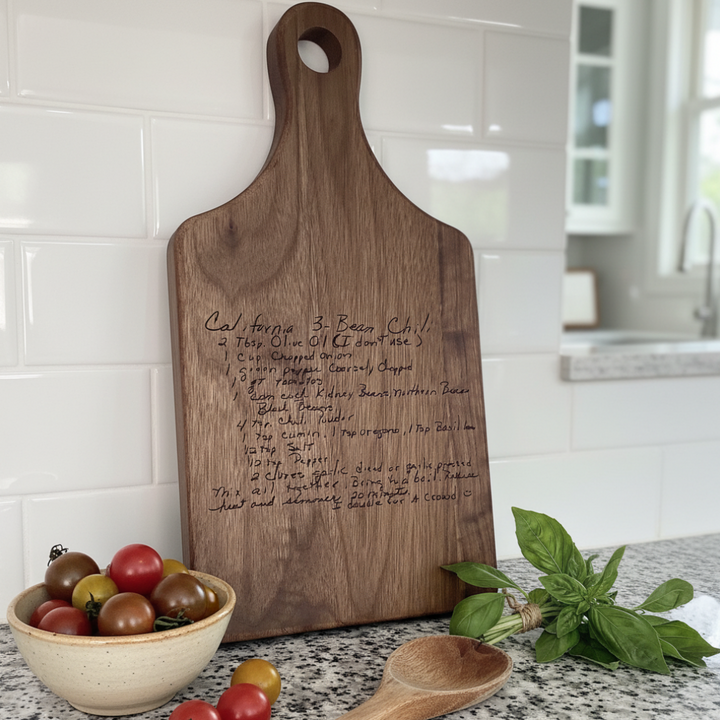 California 3-Bean Chili
2 Tbsp. Olive Oil (I don't use)
1 cup Chopped onion
1 green pepper Coarsely Chopped
1 qt tomatoes
1 can each Kidney Beans, Northern Beans
Black Beans
4 tsp. Chili Powder
1 tsp cumin, 1 tsp oregano, 1 tsp Basil
1/2 tsp Salt
1/2 tsp Pepper
2 cloves garlic diced or garlic pressed
Mix all together. Bring to a boil. Reduce
heat and simmer 20 minutes.
I double for A Crowd ☺